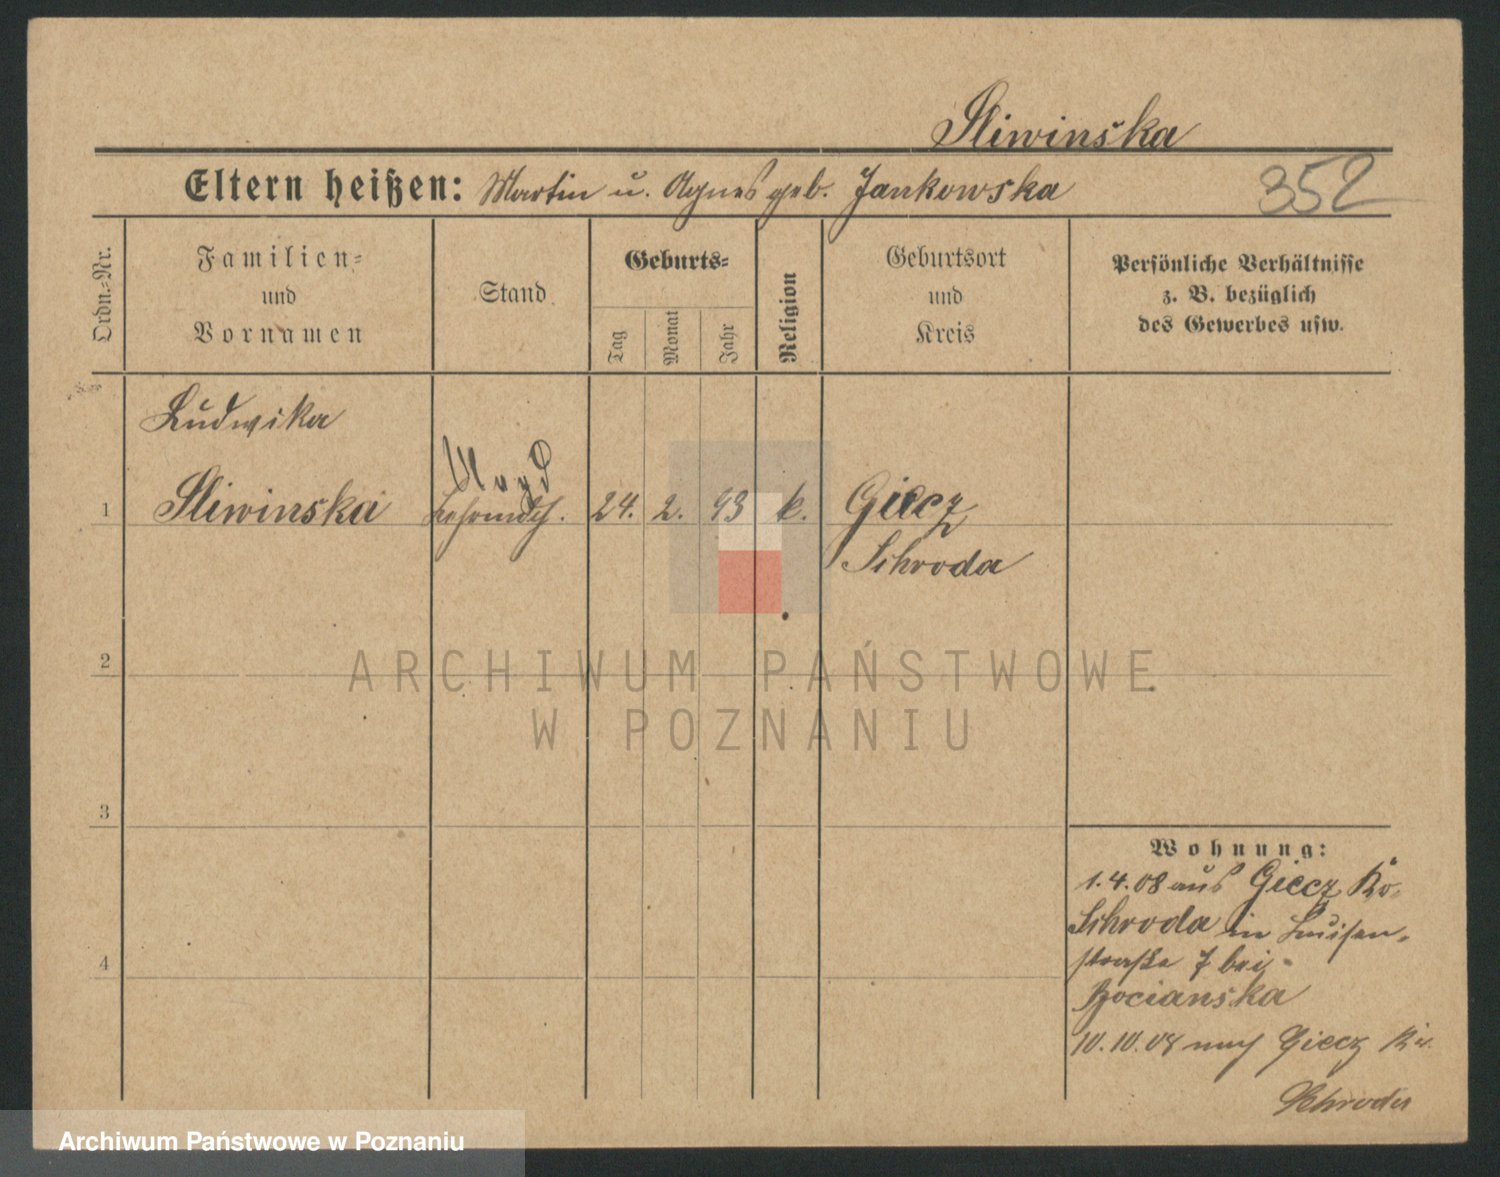 Sliwinska
Eltern heißen: Martin u. Agnes geb. Jankowska
352
Ordn.-Nr.
Familien-
und
Vornamen
Stand
Geburts-
Tag
Monat
Jahr
Religion
Geburtsort
und
Kreis
Persönliche Verhältnisse
z. B. bezüglich
des Gewerbes usw.
Ludwika
1 Sliwinska
24. 2. 93 k. Giecz
Schroda
2
3
4
Wohnung:
1.4.08 aus Giecz Kr.
Schroda in Luisen-
straße 7 bei
Bocianska
10.10.08 nach Giecz Kr.
Schroda
ARCHIWUM PAŃSTWOWE
W POZNANIU
Archiwum Państwowe w Poznaniu